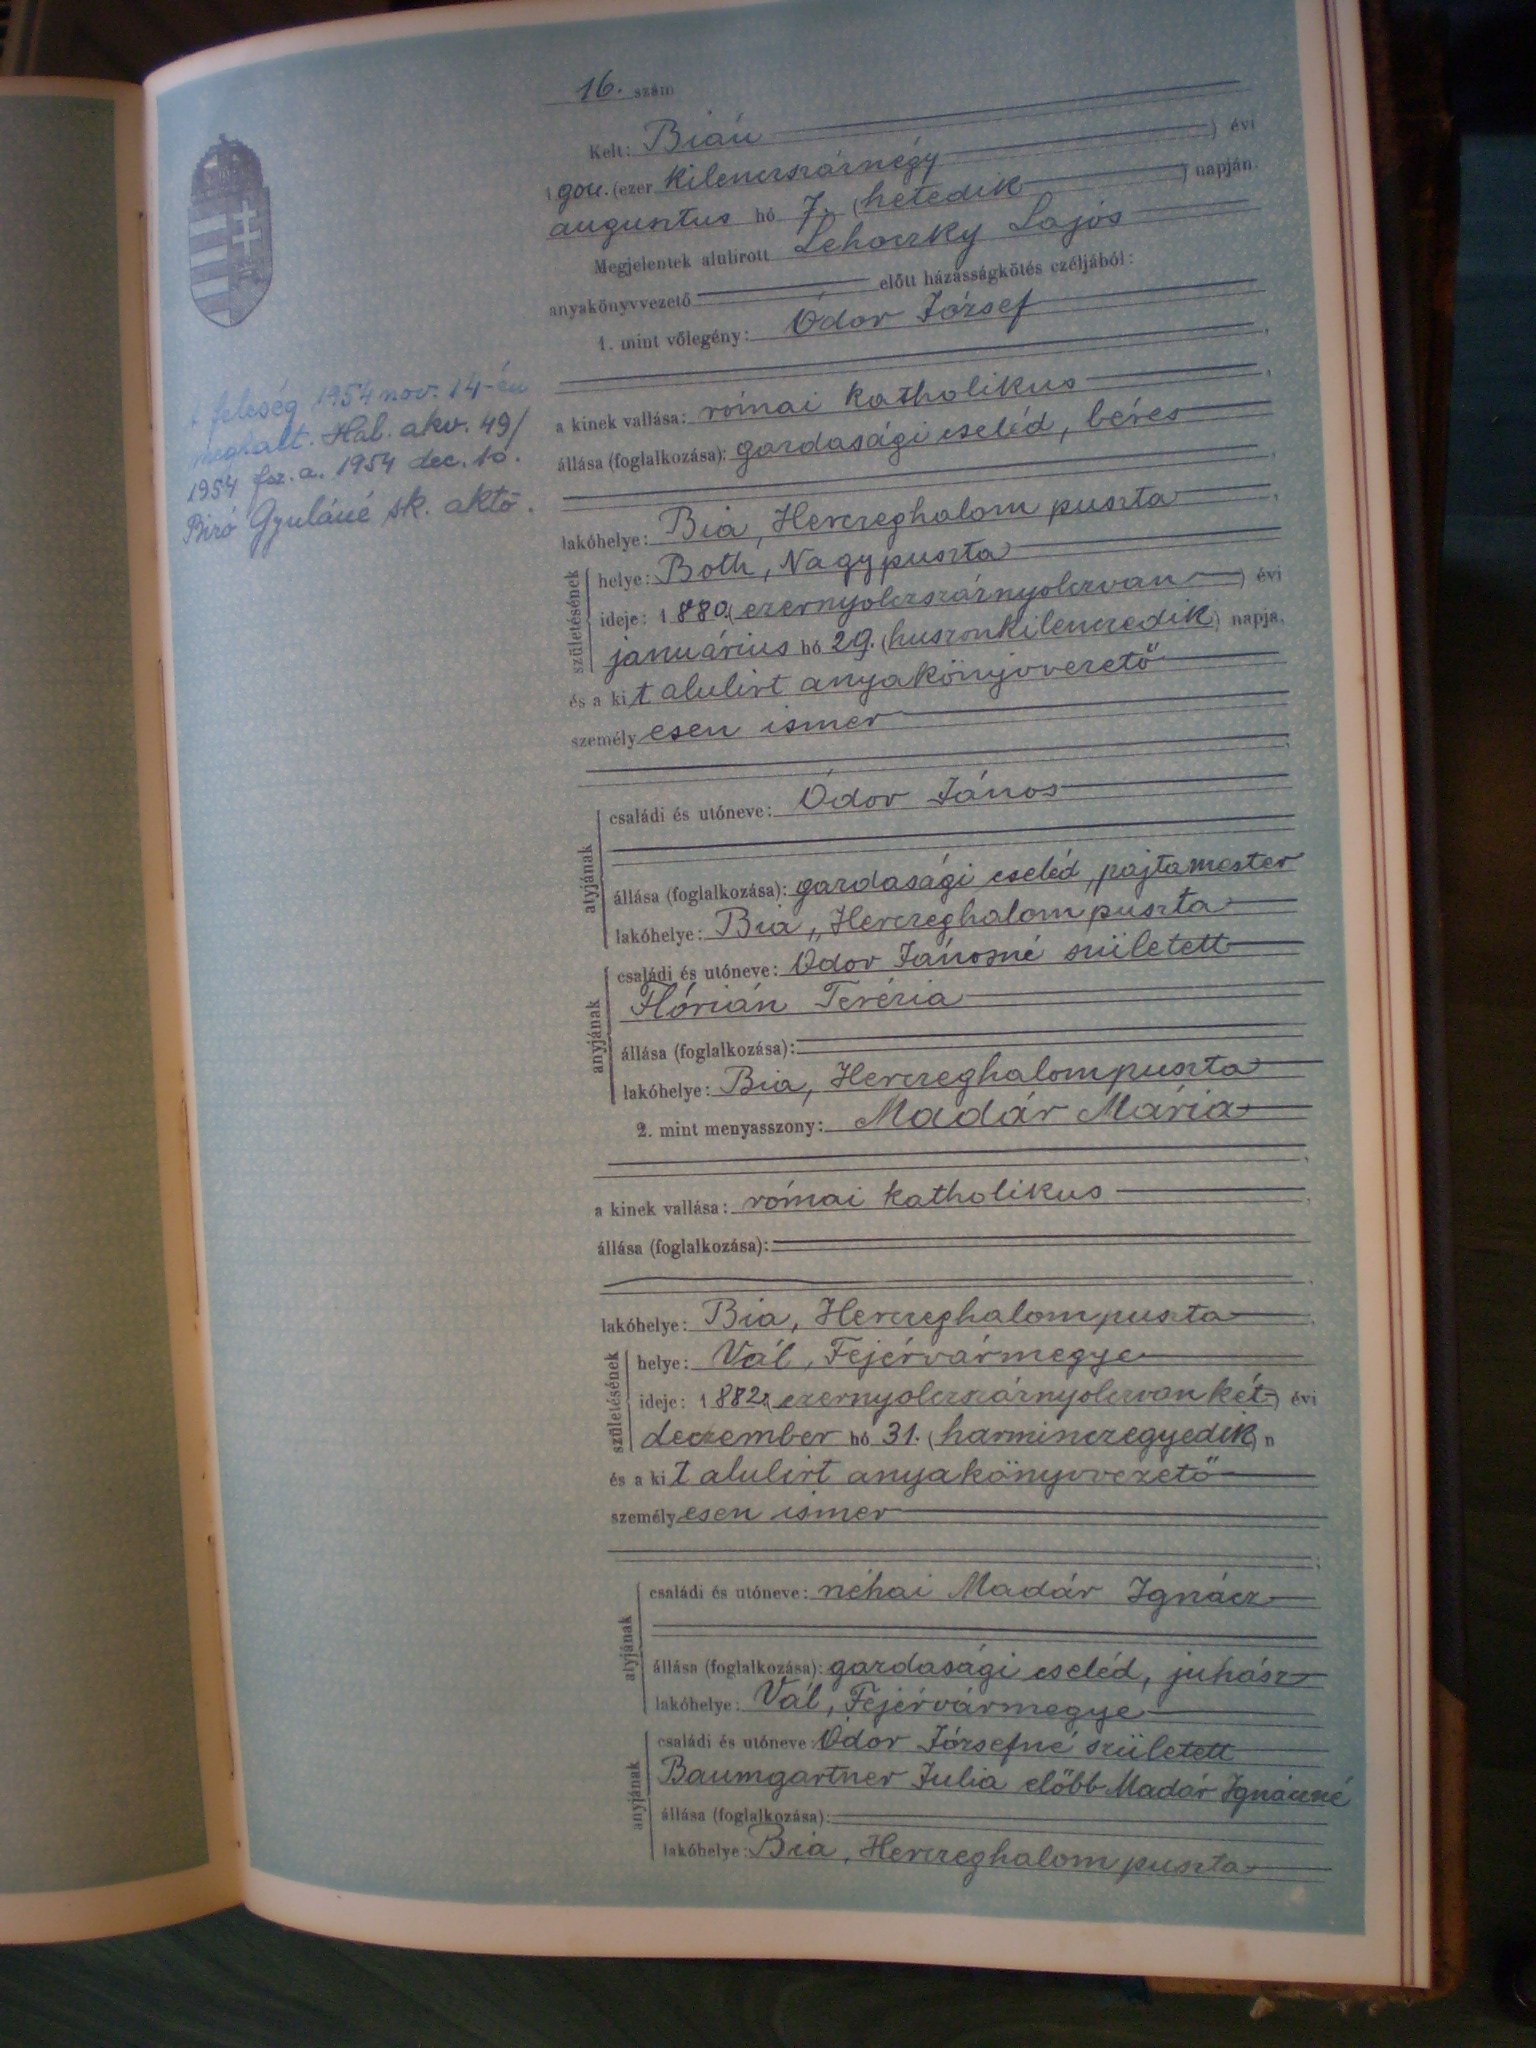 16. szám
Kelt: Bián
1904. (ezer kilenczszáznégy ) évi
augusztus hó 7. (hetedik ) napján.
Megjelentek alulirott Lehoczky Lajos
anyakönyvvezető előtt házasságkötés czéljából:
1. mint vőlegény: Ódor József
a kinek vallása: római katholikus
állása (foglalkozása): gazdasági cseléd, béres
lakóhelye: Bia, Herczeghalom puszta
születésének
helye: Both, Nagypuszta
ideje: 1880. (ezernyolczszáznyolczvan ) évi
január​ius hó 29. (huszonkilenczedik) napja.
és a kit alulirt anyakönyvvezető
személyesen ismer
atyjának
családi és utóneve: Ódor János
állása (foglalkozása): gazdasági cseléd, pajtamester
lakóhelye: Bia, Herczeghalom puszta
anyjának
családi és utóneve: Odor Jánosné született
Flórián Terézia
állása (foglalkozása):
lakóhelye: Bia, Herczeghalompuszta
2. mint menyasszony: Madár Mária
a kinek vallása: római katholikus
állása (foglalkozása):
lakóhelye: Bia, Herczeghalompuszta
születésének
helye: Vál, Fejérvármegye
ideje: 1882. (ezernyolczszáznyolczvankét ) évi
deczember hó 31. (harminczegyedik) n
és a kit alulirt anyakönyvvezető
személyesen ismer
atyjának
családi és utóneve: néhai Madár Ignácz
állása (foglalkozása): gazdasági cseléd, juhász
lakóhelye: Vál, Fejérvármegye
anyjának
családi és utóneve: Odor Józsefné született
Baumgartner Julia előbb Madár Ignáczné
állása (foglalkozása):
lakóhelye: Bia, Herczeghalom puszta
A feleség 1954 nov. 14-én
meghalt. Hal. akv. 49/
1954 fsz. a. 1954 dec. 10.
Biró Gyuláné sk. aktő.